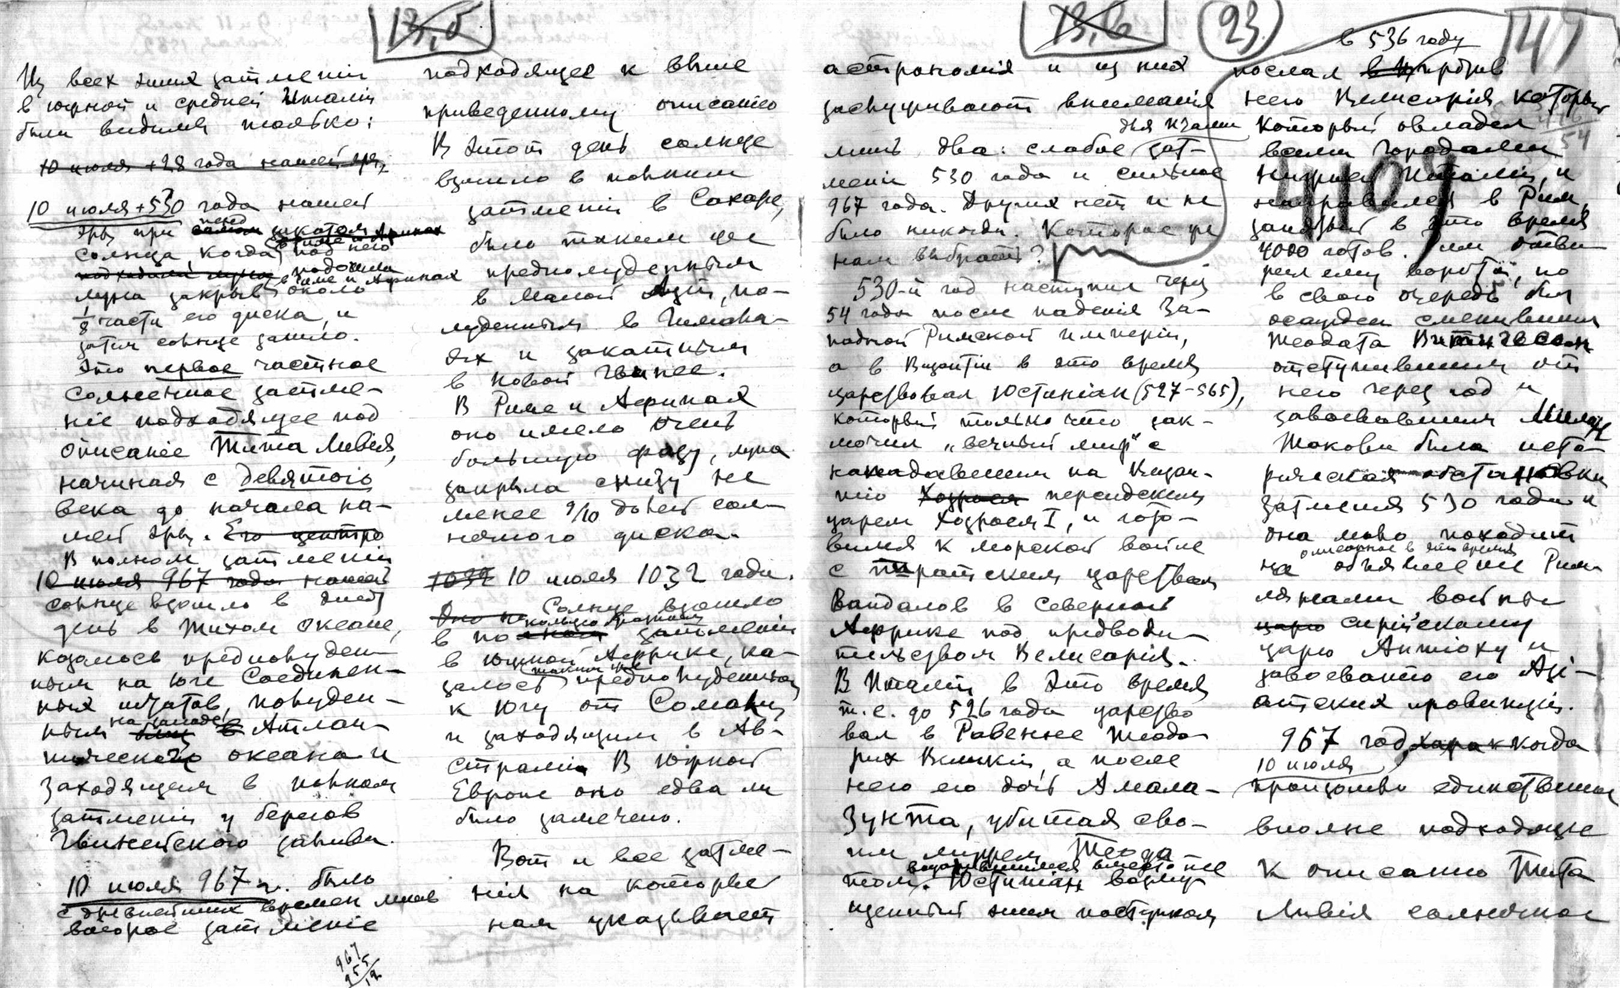 13,б
Из всех этих затменій
в южной и средней Италіи
были видимы только:
10 июля +28 года нашей эры,
10 июля +530 года нашей
эры при
солнца, когда под него
подошла
луна закрыв в Риме и Афинах около
1/8 части его диска, и
затем солнце зашло.
Это первое частное
солнечное затме-
ніе подходящее под
описаніе Тита Ливія,
начиная с девятого
века до начала на-
шей эры. Его центр
В полном затменіи
10 июля 967 года нашей
солнце взошло в этот
день в Тихом океане,
казалось предполуден-
ным на юге Соединен-
ных штатов, полуден-
ным на западе Атлан-
тического океана и
заходящем в полном
затменіи у берегов
Гвинейского залива.
10 июля 967 г. было
с древнейших времен
второе затменіе
967
955
12
подходящее к выше
приведенному описанію
В этот день солнце
взошло в полном
затменіи в Сахаре,
было таким же
предполуденным
в Малой Азіи, по-
луденным в Гимала-
ях и закатным
в Новой Гвинее.
В Риме и Афинах
оно имело очень
большую фазу, луна
закрыла снизу не
менее 9/10 долей сол-
нечного диска.
1032 10 июля 1032 года.
Солнце взошло
в затменіи
в южной Африке, ка-
залось предполуденным
к югу от Сомали
и заходящим в Ав-
стралии В южной
Европе оно едва ли
было замечено.
Вот и все затме-
нія на которые
нам указывает
13,в
23
астрономія и из них
заслуживают вниманія
для Италии
лишь два: слабое зат-
меніе 530 года и сильное
967 года. Других нет и не
было никогда. Которое же
нам выбрать?
530-й год наступил через
54 года после паденія За-
падной Римской имперіи,
а в Византіи в это время
царствовал Юстиніан (527-565),
который только что зак-
лючил „вечный мир" с
нападавшим на Визан-
тію Хозроем персидским
царем Хозроем I, и гото-
вился к морской войне
с пиратским царством
Вандалов в Северной
Африке под предводи-
тельством Велисарія.
В Италіи в это время
т.е. до 526 года царство
вал в Равенне Теодо-
рих Великій, а после
него его дочь Амала-
зунта, убитая сво-
им мужем Теода
том. Юстиніан возму-
щенный этим поступком
47
в 536 году
послал против
него Велисарія, который
который овладел
всеми городами
Нижней Италіи, и
направился в Рим,
занятый в это время
4000 готов. Они отво
рили ему ворота, но
в свою очередь был
осажден сменившим
Теодата Витигесом
отступившим от
него через год и
завоевавшим Милан
Такова была исто-
рическая обстановка
затменія 530 года и
она мало походит
на объявленіе Рим-
лянами войны
царю сирійскому
царю Антіоху и
завоеванію его Азі-
атских провинцій.
967 год, когда
10 июля
произошло единственное
вполне подходящее
к описанію Тита
Ливія солнечное
4107